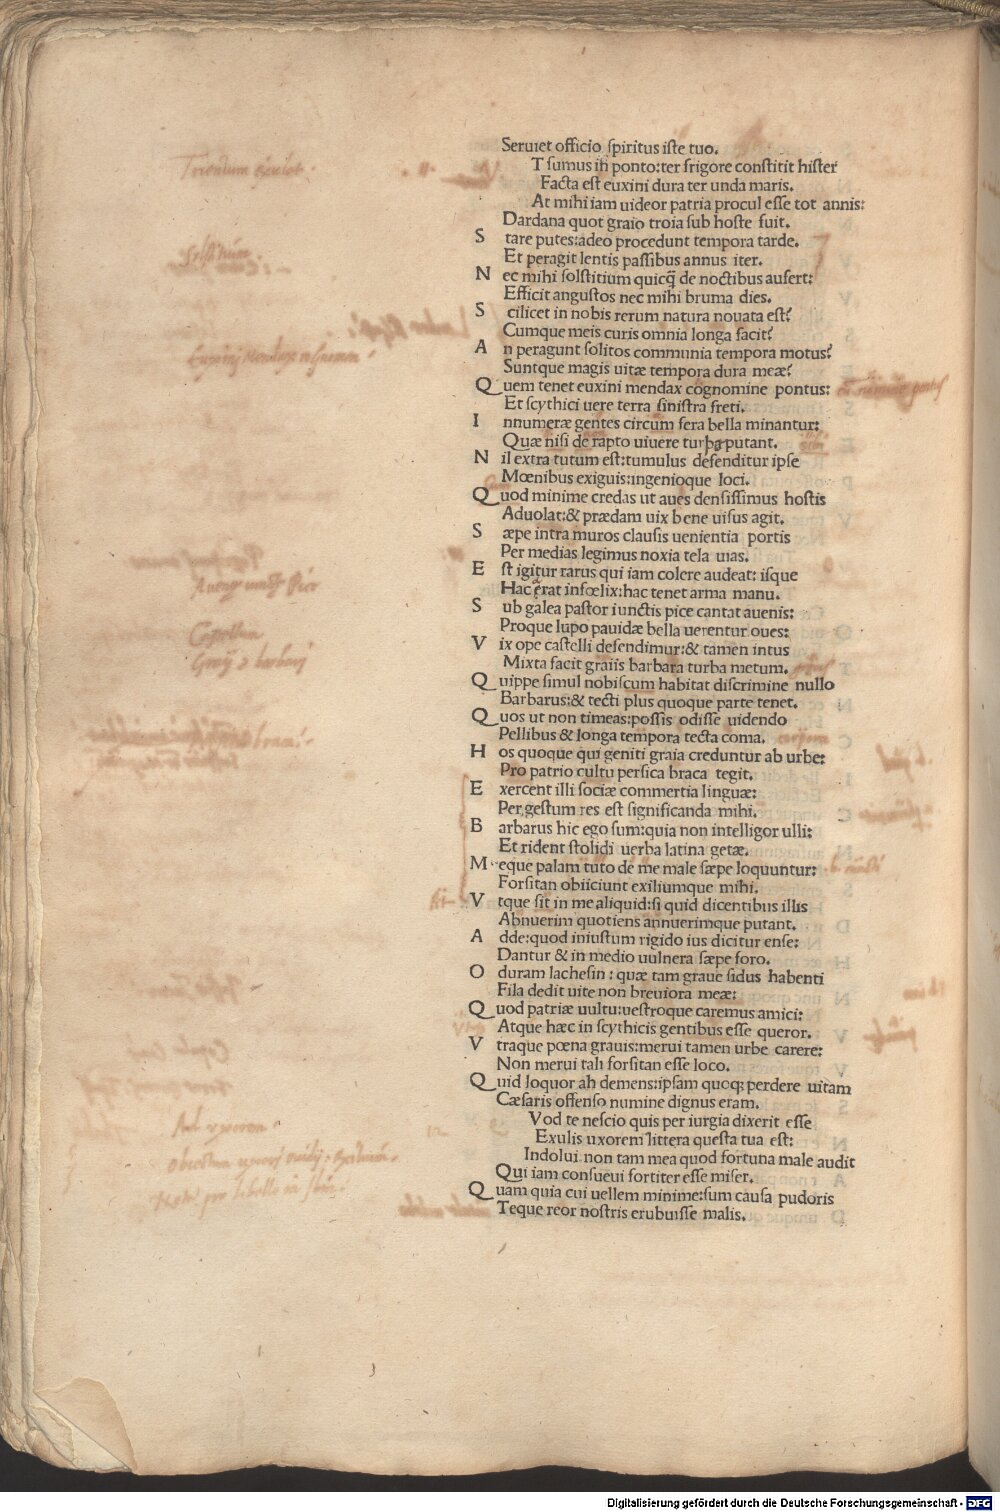 Seruiet officio spiritus iste tuo.
T sumus in ponto:ter frigore constitit hister
Facta est euxini dura ter unda maris.
At mihi iam uideor patria procul esse tot annis:
Dardana quot graio troia sub hoste fuit.
S tare putes:adeo procedunt tempora tarde.
Et peragit lentis passibus annus iter.
N ec mihi solstitium quicq̃ de noctibus aufert:
Efficit angustos nec mihi bruma dies.
S cilicet in nobis rerum natura nouata est?
Cumque meis curis omnia longa facit?
A n peragunt solitos communia tempora motus?
Suntque magis uitæ tempora dura meæ?
Q uem tenet euxini mendax cognomine pontus:
Et scythici uere terra sinistra freti.
I nnumeræ gentes circum fera bella minantur:
Quæ nisi de rapto uiuere turpe putant.
N il extra tutum est:tumulus defenditur ipse
Mœnibus exiguis:ingenioque loci.
Q uod minime credas ut aues densissimus hostis
Aduolat:& prædam uix bene uisus agit.
S æpe intra muros clausis uenientia portis
Per medias legimus noxia tela uias.
E st igitur rarus qui iam colere audeat: isque
Hac erat infœlix:hac tenet arma manu.
S ub galea pastor iunctis pice cantat auenis:
Proque lupo pauidæ bella uerentur oues:
V ix ope castelli defendimur:& tamen intus
Mixta facit graiis barbara turba metum.
Q uippe simul nobiscum habitat discrimine nullo
Barbarus:& tecti plus quoque parte tenet.
Q uos ut non timeas:possis odisse uidendo
Pellibus & longa tempora tecta coma.
H os quoque qui geniti graia creduntur ab urbe:
Pro patrio cultu persica braca tegit.
E xercent illi sociæ commertia linguæ:
Per gestum res est significanda mihi.
B arbarus hic ego sum:quia non intelligor ulli:
Et rident stolidi uerba latina getæ.
M eque palam tuto de me male sæpe loquuntur:
Forsitan obiiciunt exiliumque mihi.
V tque fit in me aliquid:si quid dicentibus illis
Abnuerim quotiens annuerimque putant.
A dde:quod iniustum rigido ius dicitur ense:
Dantur & in medio uulnera sæpe foro.
O duram lachesin: quæ tam graue sidus habenti
Fila dedit uite non breuiora meæ:
Q uod patriæ uultu:uestroque caremus amici:
Atque hæc in scythicis gentibus esse queror.
V traque pœna grauis:merui tamen urbe carere:
Non merui tali forsitan esse loco.
Q uid loquor ah demens:ipsam quoq; perdere uitam
Cæsaris offenso numine dignus eram.
Vod te nescio quis per iurgia dixerit esse
Exulis uxorem littera questa tua est:
Indolui non tam mea quod fortuna male audit
Qui iam consueui fortiter esse miser.
Q uam quia cui uellem minime:sum causa pudoris
Teque reor nostris erubuisse malis.
Ad uxorem
Digitalisierung gefördert durch die Deutsche Forschungsgemeinschaft - DFG